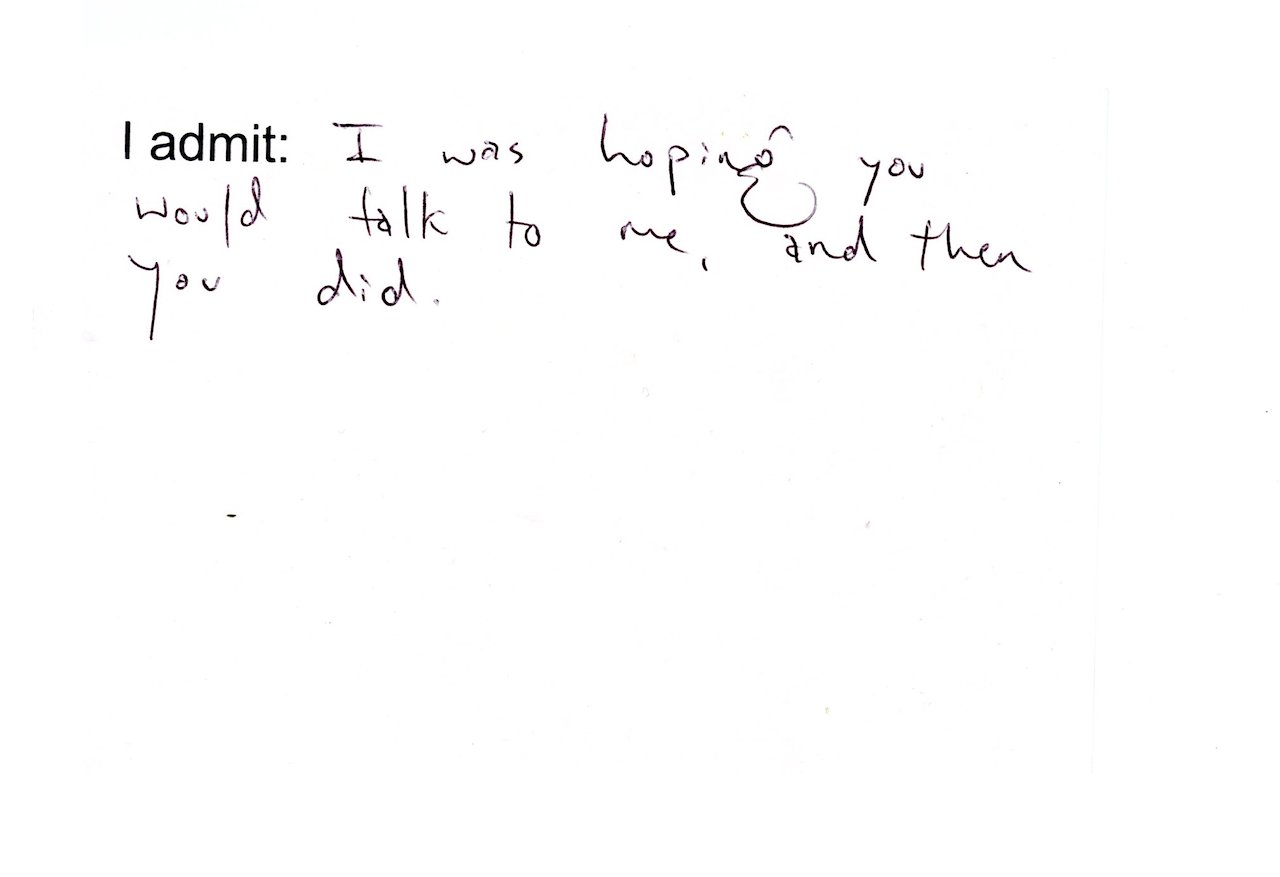 I admit: I was hoping you
would talk to me, and then
you did.